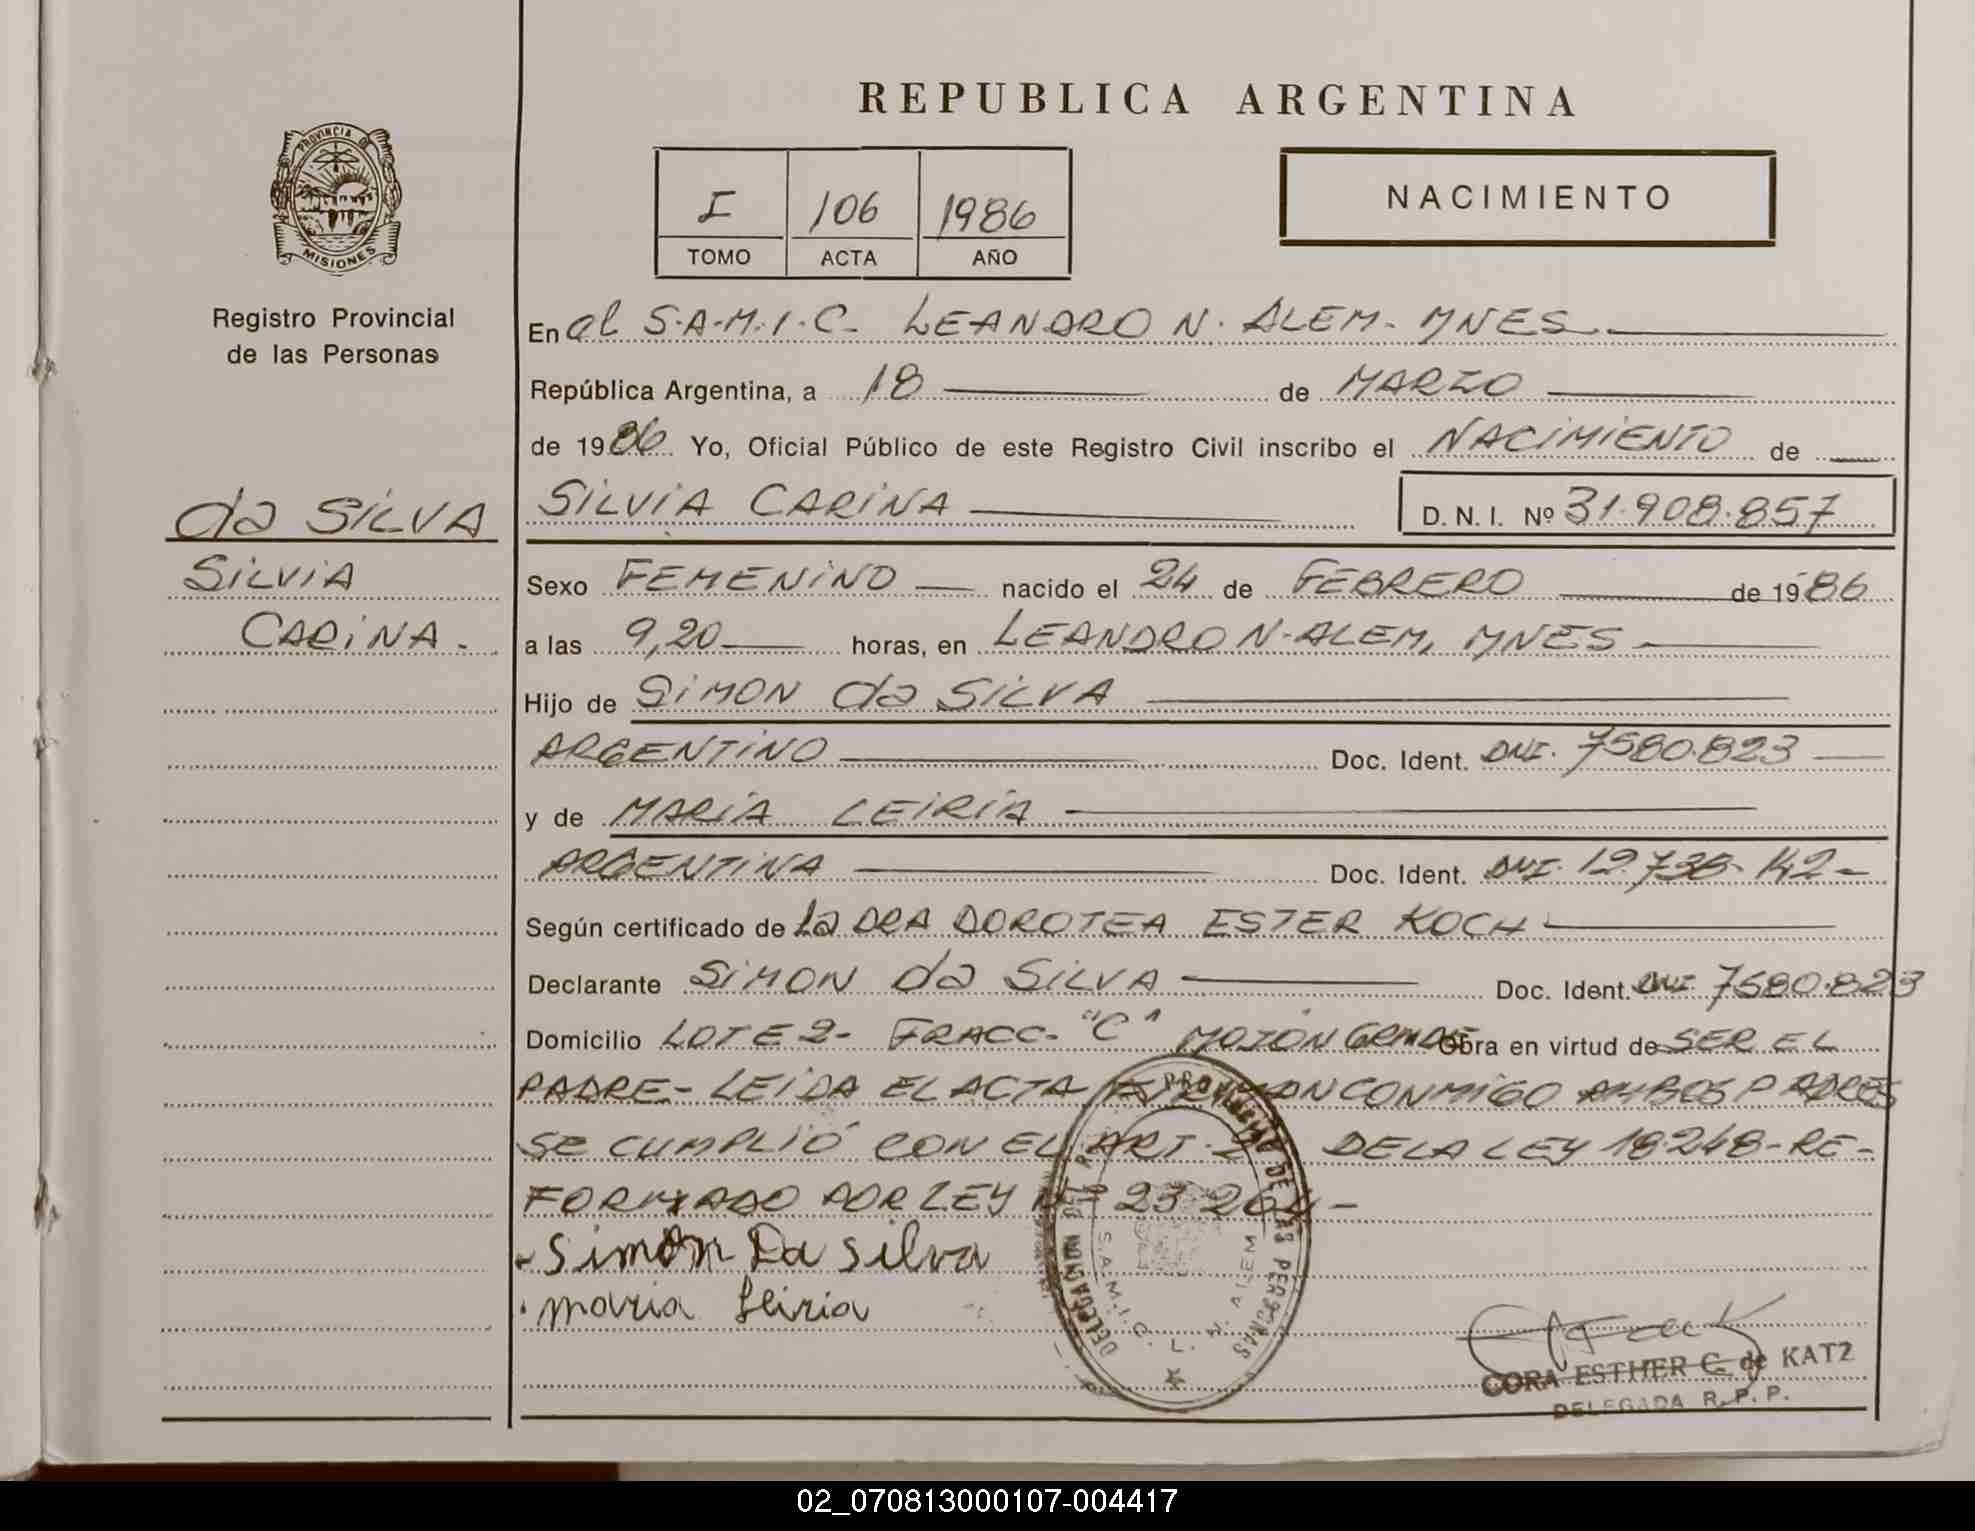 REPUBLICA ARGENTINA
PROVINCIA DE
MISIONES
Registro Provincial
de las Personas
I 106 1986
TOMO ACTA AÑO
NACIMIENTO
En al S.A.M.I.C. LEANDRO N. ALEM - MNES
República Argentina, a 18 de MARZO
de 1986. Yo, Oficial Público de este Registro Civil inscribo el NACIMIENTO de
da SILVA
SILVIA
CARINA.
SILVIA CARINA D. N. I. Nº 31.908.857
Sexo FEMENINO nacido el 24 de FEBRERO de 1986
a las 9,20 horas, en LEANDRO N. ALEM, MNES
Hijo de SIMON da SILVA
ARGENTINO Doc. Ident. DNI. 7580.823
y de MARIA LEIRIA
ARGENTINA Doc. Ident. DNI. 12.738.142-
Según certificado de la DRA DOROTEA ESTER KOCH
Declarante SIMON da SILVA Doc. Ident. DNI 7580.823
Domicilio LOTE 2- FRACC- "C" MOJON GRANDE Obra en virtud de SER EL
PADRE- LEIDA EL ACTA FIRMAN CONMIGO AMBOS PADRES
SE CUMPLIÓ CON EL ART. DE LA LEY 18248-RE-
FORMADO POR LEY Nº 23264-
- Simon Da silva
. maria leiria
DELEGACION DEL REGISTRO PROVINCIAL DE LAS PERSONAS
S.A.M.I.C. L. N. ALEM
CORA ESTHER C. de KATZ
DELEGADA R. P. P.
02_070813000107-004417